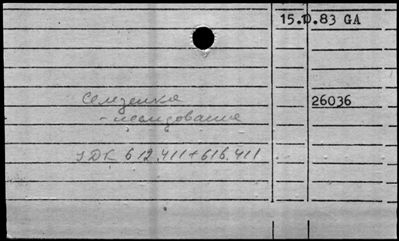 15.10.83 GA
Селезенка 26036
- исследование
УДК 612.411+616.411